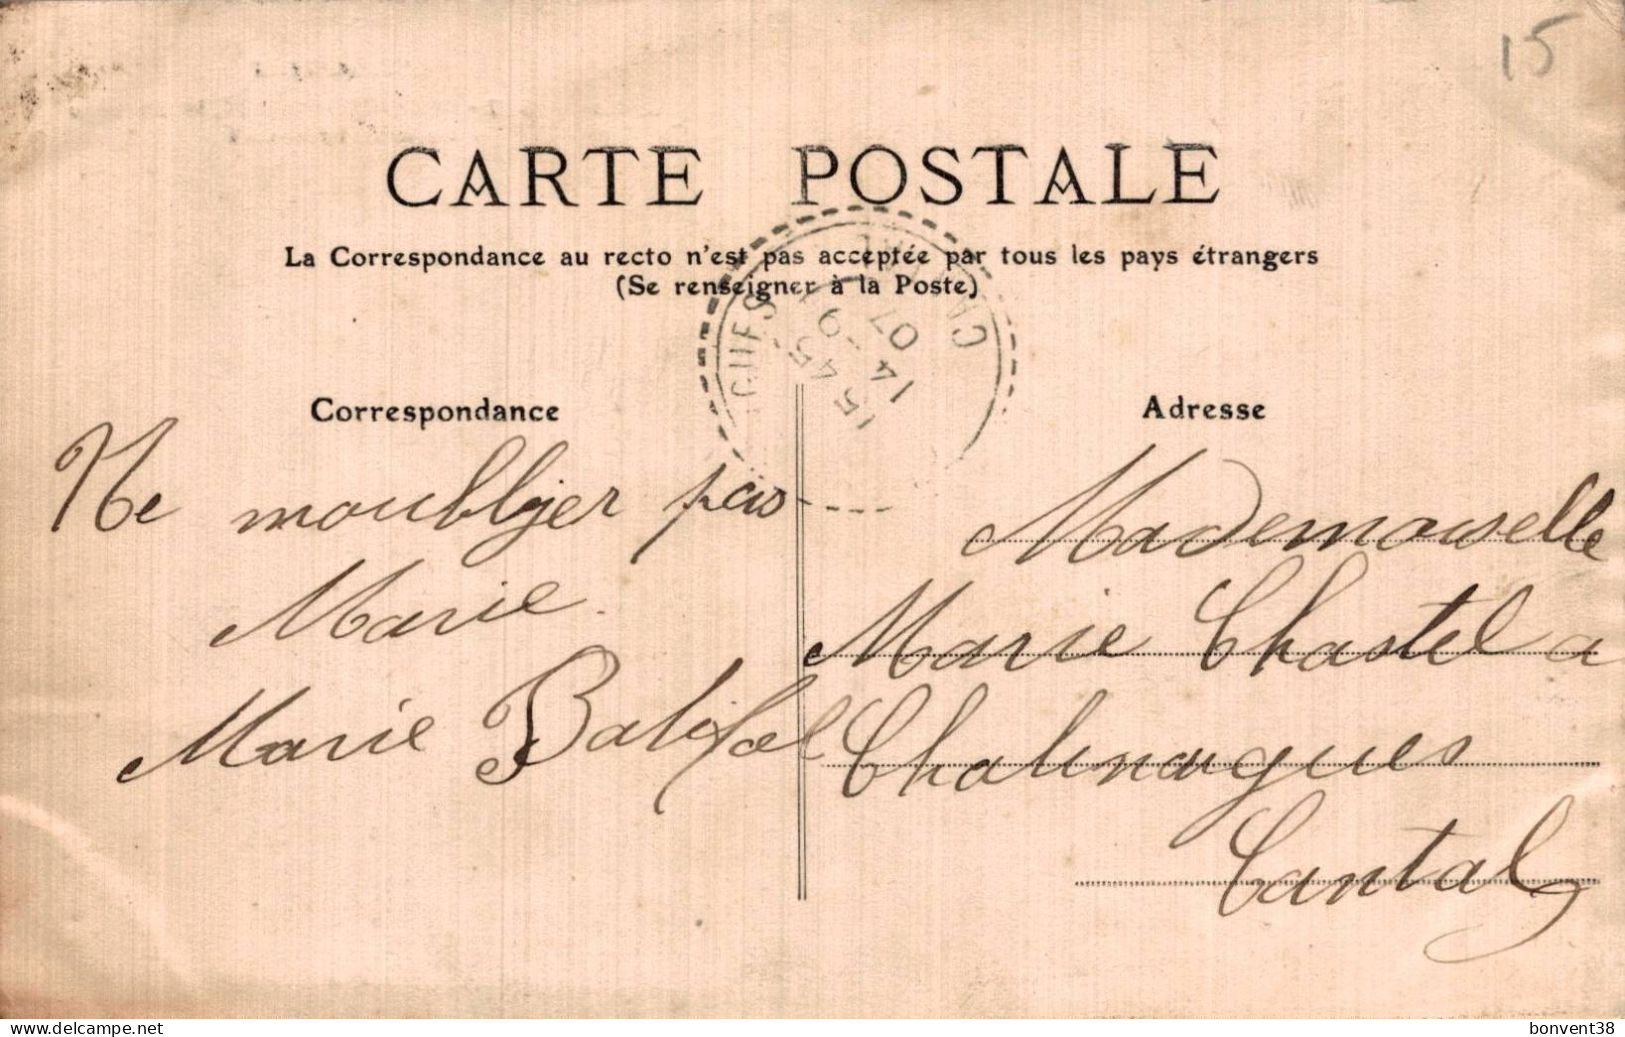 15
CARTE POSTALE
La Correspondance au recto n'est pas acceptée par tous les pays étrangers
(Se renseigner à la Poste)
15 45
14 -9
07
Correspondance
Ne moubljer pas ----
Marie.
Marie Batifol
Adresse
Mademoiselle
Marie Chastel a
Chalinargues
Cantal
www.delcampe.net
bonvent38